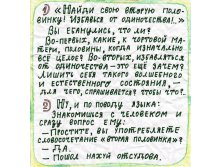 ① «Найди свою вторую поло-
винку! Избавься от одиночества!..»
Вы ебанулись, что ли?
Во-первых, какие, к чортовой ма-
тери, половины, когда изначально
всё целое? Во-вторых, избавлятся
от одиночества – это ещё зачем?
Лишить себя такого волшебного
и естественного состояния,
для чего, спрашивается, чтоб?
② Ну, и по поводу языка:
Знакомишся с человеком и
сразу вопрос ему:
– Простите, вы употребляете
словосочетание «вторая половинка»?
– Да.
– Пошол нахуй отсудова.